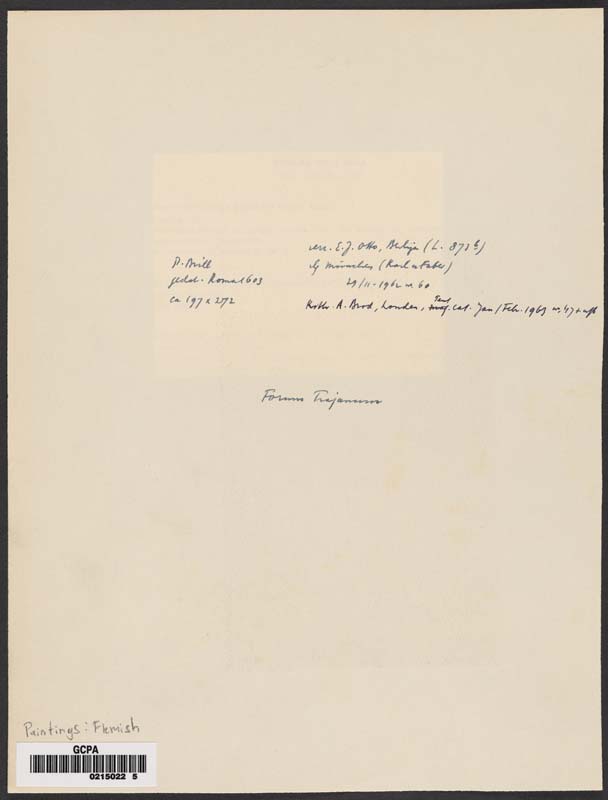 P. Brill
gedat. Roma 1603
ca 197 x 272
verz. E.J. Otto, Berlijn (L. 873 b)
vlg München (Karl u Faber)
29/11-1962 n. 60
Kunsth. A. Brod, Londen, cat. Jan/Feb. 1963 no. 47 + afb
Forum Trajanum
Paintings: Flemish
GCPA
0215022 5